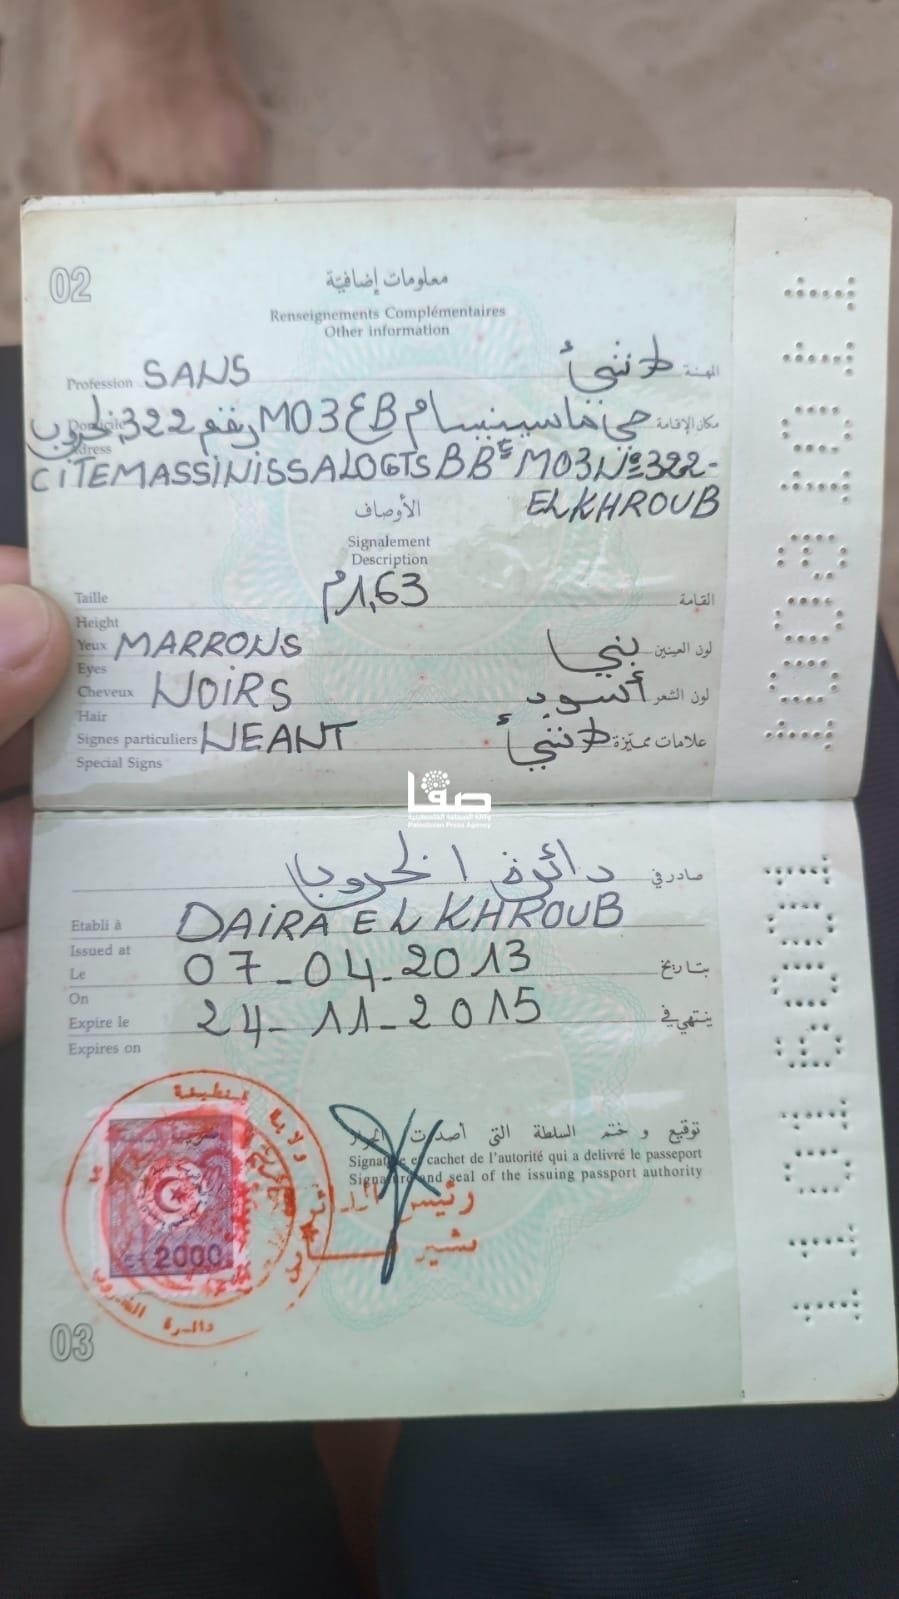 02
معلومات إضافيّة
Renseignements Complémentaires
Other information
Profession SANS المهنة
مكان الإقامة حي ماسينيسا م B ع M03 رقم 322 الخروب
Domicile
Adress
CITE MASSINISSA LOGTS B BE M03 No 322-
EL KHROUB
الأوصاف
Signalement
Description
Taille 1,63 م القامة
Height
Yeux MARRONS بني لون العينين
Eyes
Cheveux NOIRS أسود لون الشعر
Hair
Signes particuliers NEANT علامات مميّزة
Special Signs
صفا
وكالة الصحافة الفلسطينية
Palestinian Press Agency
دائرة الخروب صادر في
Etabli à DAIRA EL KHROUB
Issued at
Le 07-04-2013 بتاريخ
On
Expire le 24-11-2015 ينتهي في
Expires on
توقيع و ختم السلطة التي أصدرت الجواز
Signature et cachet de l'autorité qui a delivré le passeport
Signature and seal of the issuing passport authority
رئيس الدائرة
بشير
ولاية قسنطينة
2000
دائرة الخروب
03